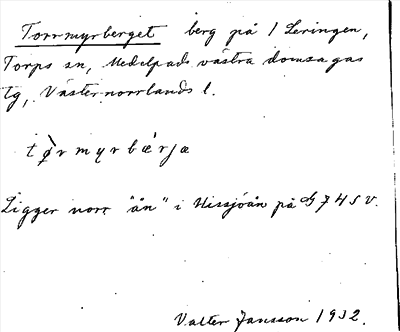 Torrmyrberget berg på 1 Leringen,
Torps sn, Medelpads västra domsagas
tg, Västernorrlands l.
tø̀rmyrbærjæ
Ligger norr "ån" i Hissjöån på G74SV.
Valter Jansson 1932.